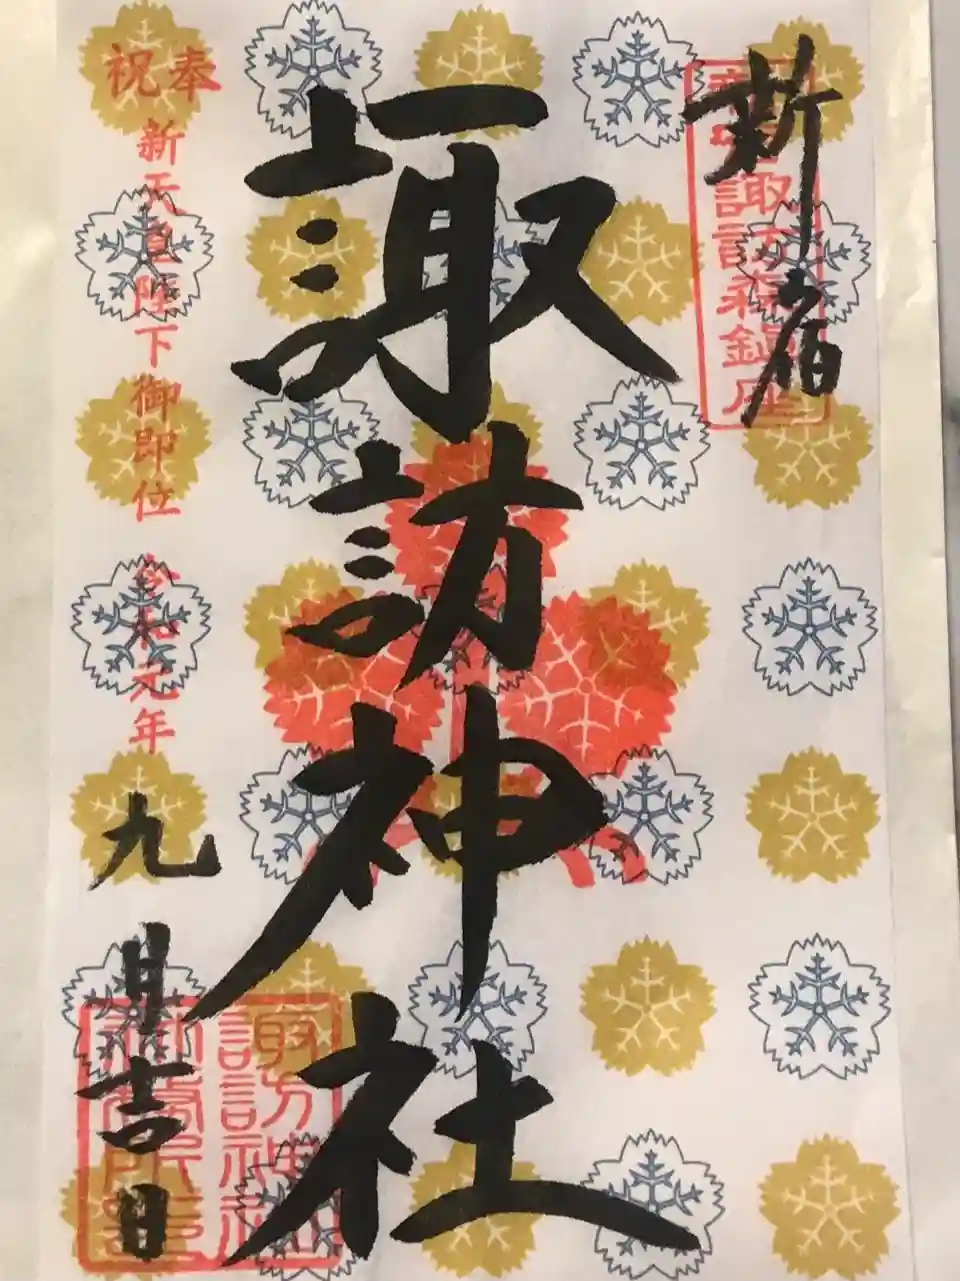 新宿
諏訪森鎮座
諏訪神社
奉祝
新天皇陛下御即位 令和元年
九月吉日
諏訪神社